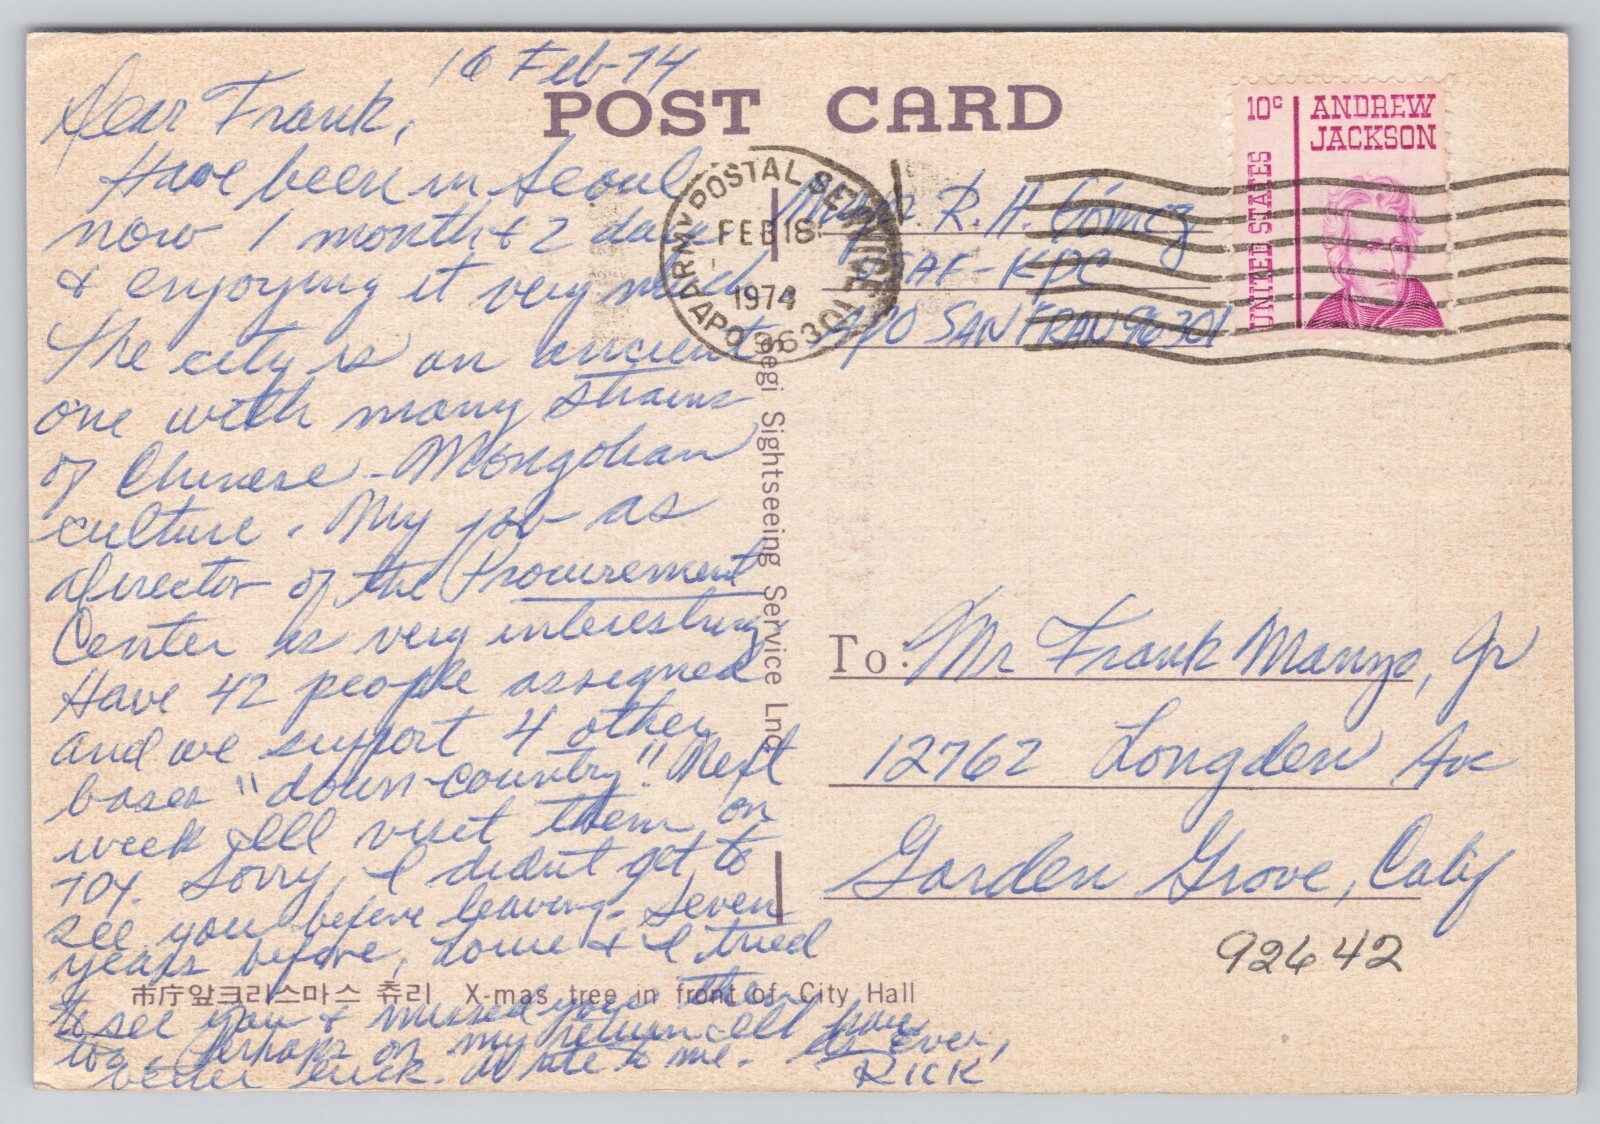 16 Feb-74
Dear Frank,
Have been in Seoul
now 1 month + 2 days
+ enjoying it very much
The city is an ancient
one with many strains
of Chinese-Mongolian
culture. My job as
director of the Procurement
Center is very interesting
Have 42 people assigned
and we support 4 other
bases "down-country". Next
week I'll visit them on
TDY. Sorry I didn't get to
see you before leaving. Seven
years before, & I tried
to see you & missed you then
too. Perhaps on my return I'll have
better luck. Write to me. As Ever,
RICK
POST CARD
10c ANDREW
JACKSON
UNITED STATES
ARMY POSTAL SERVICE
FEB 18
1974
APO 96301
R. H. Gómez
USAF-KPC
APO SAN FRAN 96301
Segi Sightseeing Service Lnc
To: Mr Frank Manzo, Jr
12762 Longden Ave
Garden Grove, Calif
92642
市庁앞크리스마스 츄리 X-mas tree in front of City Hall